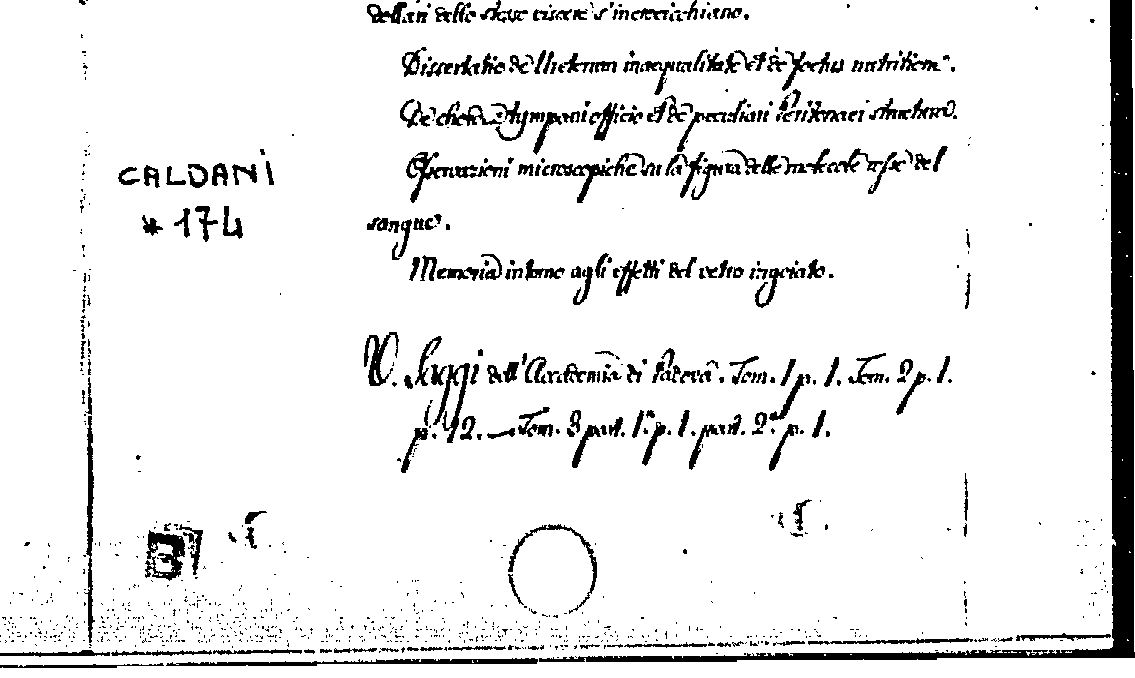 dello stesso viscere s'inorecchiano.
Dissertatio de Ureterum inaequalitate et de foetus nutritione.
De chorda tympani officio et de peculiari Peritonaei structura.
Osservazioni microscopiche su la figura delle molecole rosse del
CALDANI
* 174
sangue.
Memoria intorno agli effetti del vetro ingoiato.
V. Saggi dell'Accademia di Padova. Tom. 1 p. 1. Tom. 2 p. 1.
p. 12. — Tom. 3 part. 1.ª p. 1. part. 2.ª p. 1.